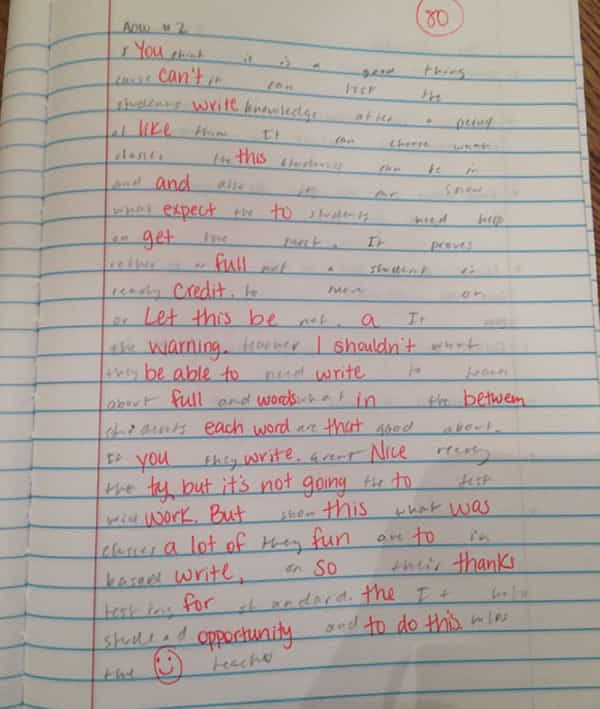 80
AOW #2
I You think it is a good thing
cause can't it can test the
students write knowledge after a period
of like them It can choose what
classes the this students can be in
and and also it can show
what expect the to students need help
on get the most. It proves
rather a full not a student is
ready credit. to move on
or Let this be not. a It
the warning. teacher I shouldn't what
they be able to need write to learn
about full and words what in the between
students each word are that good about.
If you they write. aren't Nice ready
the ty, but it's not going the to test
will work. But show this what was
classes a lot of they fun are to in
based write, on so their thanks
testing for standard. the It help
student opportunity and to do this. helps
the teacher